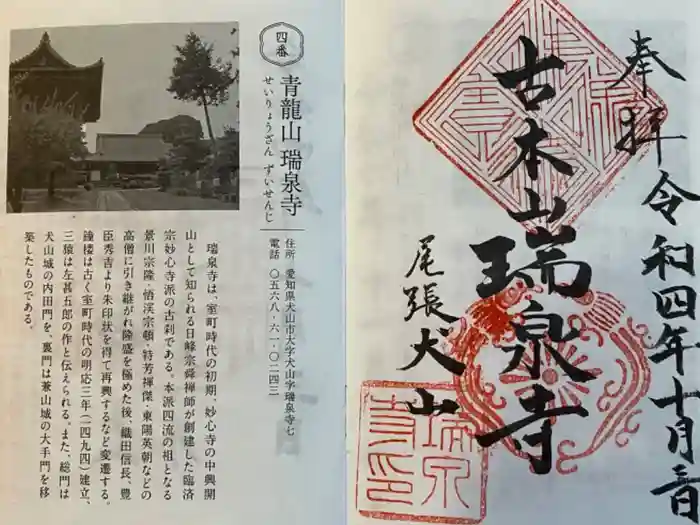 奉拝 令和四年十月
古本山瑞泉寺
尾張犬山
瑞泉寺印
四番
青龍山 瑞泉寺
せいりょうざん ずいせんじ
住所 愛知県犬山市大字犬山字瑞泉寺七
電話 〇五六八・六一・〇二四三
瑞泉寺は、室町時代の初期、妙心寺の中興開
山として知られる日峰宗舜禅師が創建した臨済
宗妙心寺派の古刹である。本派四流の祖となる
景川宗隆・悟渓宗頓・特芳禅傑・東陽英朝などの
高僧に引き継がれ隆盛を極めた後、織田信長、豊
臣秀吉より朱印状を得て再興するなど変遷する。
鐘楼は古く室町時代の明応三年(一四九四)建立、
三猿は左甚五郎の作と伝えられる。また、総門は
犬山城の内田門を、裏門は兼山城の大手門を移
築したものである。